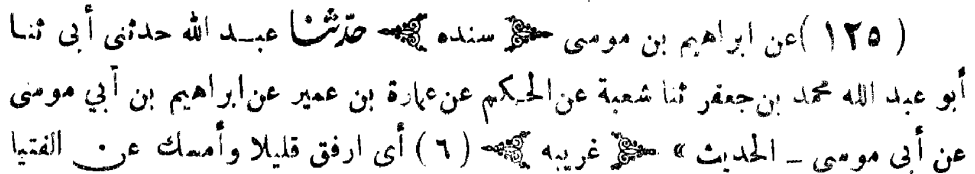 ( ١٢٥ )عن ابراهيم بن موسى ﴿ سنده ﴾ حدّثنا عبد الله حدثنى أبى ثنا
أبو عبد الله محمد بن جعفر ثنا شعبة عن الحكم عن عمارة بن عمير عن ابراهيم بن أبي موسى
عن أبى موسى ـ الحديث » ﴿ غريبه ﴾ ( ٦ ) أى ارفق قليلا وأمسك عن الفتيا